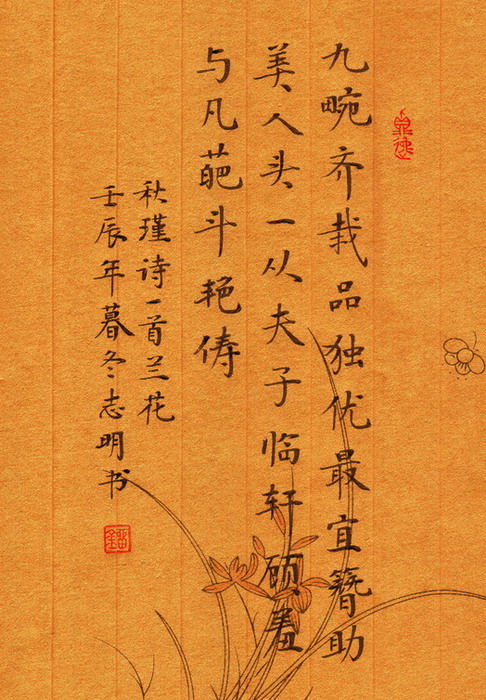 九畹齐栽品独优最宜簪助
美人头一从夫子临轩顾羞
与凡葩斗艳俦
秋瑾诗一首兰花
壬辰年暮冬志明书